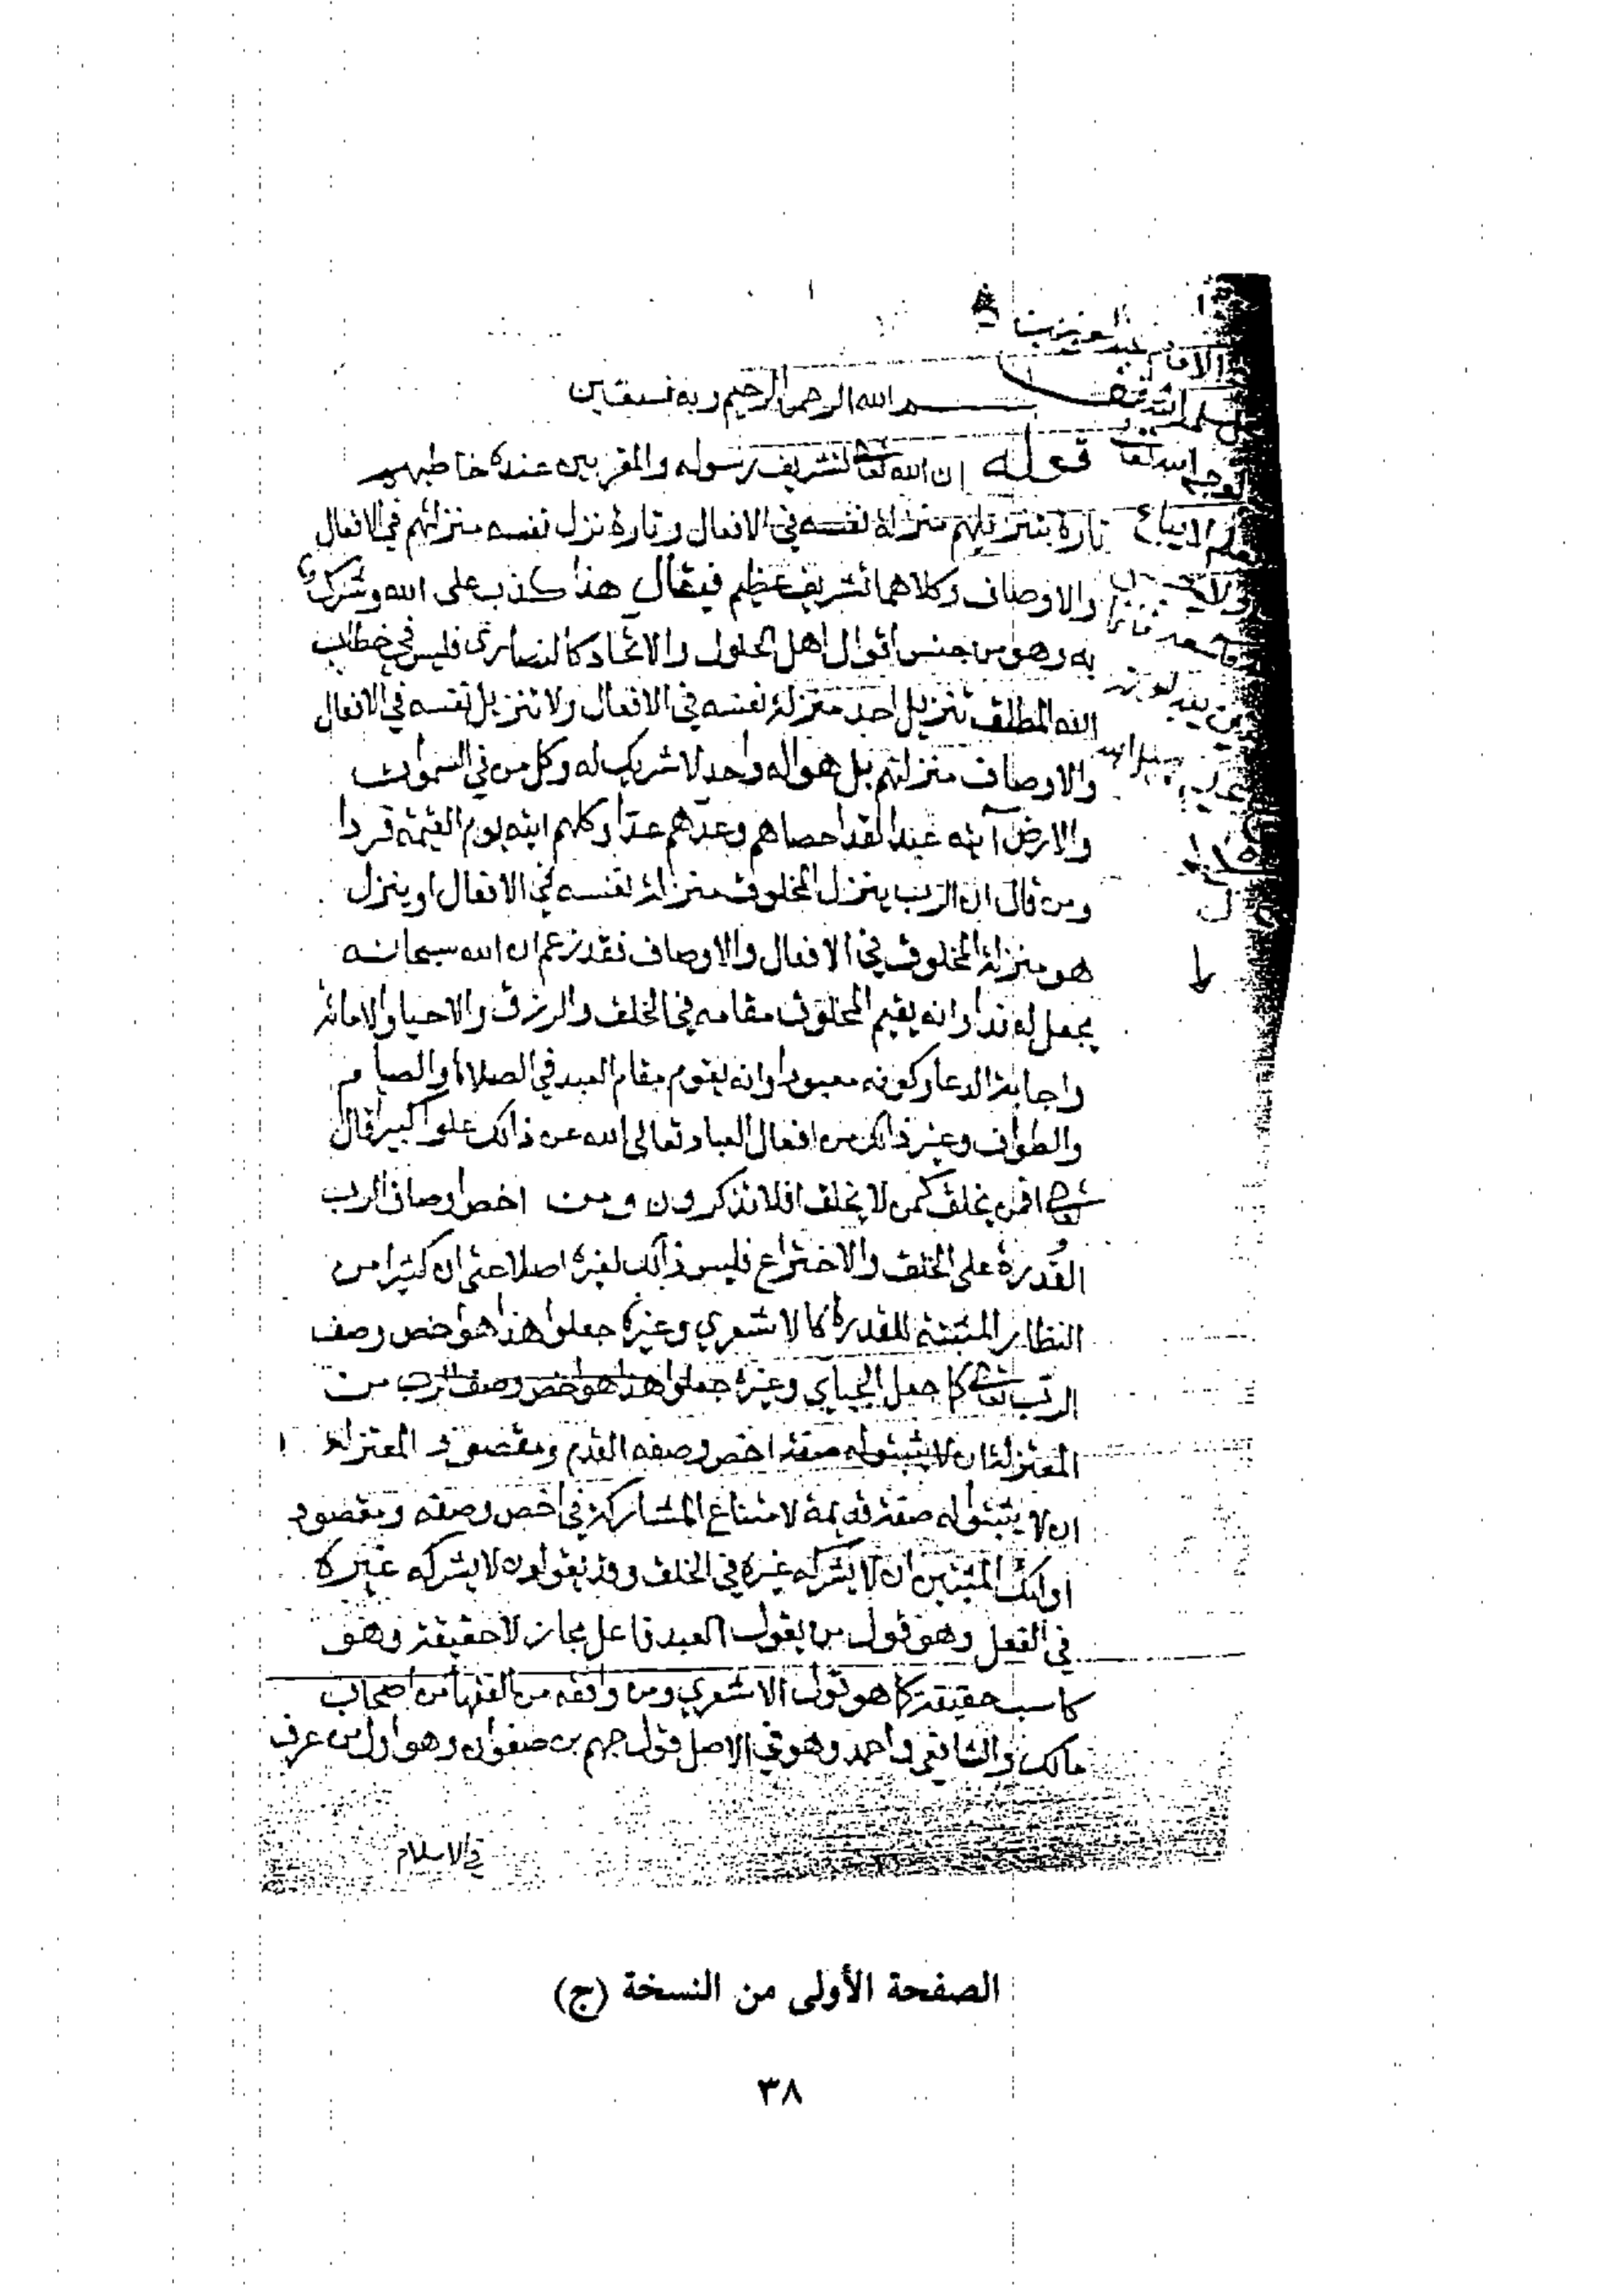 بسم الله الرحمن الرحيم وبه نستعين
قوله ان الله تعالى لتشريف رسوله والمقربين عنده خاطبهم
تارة بتنزيلهم منزلة نفسه في الافعال وتارة نزل نفسه منزلتهم في الافعال
والاوصاف وكلاهما تشريف عظيم فيقال هذا كذب على الله وشرك
به وهو من جنس اقوال اهل الحلول والاتحاد كالنصارى فليس في خطاب
الله المطلق تنزيل احد منزلة نفسه في الافعال ولا تنزيل نفسه في الافعال
والاوصاف منزلتهم بل هو اله واحد لا شريك له وكل من في السموات
والارض آتيه عبدا لقد احصاهم وعدهم عدا وكلهم اتيه يوم القيمة فردا
ومن قال ان الرب ينزل المخلوق منزلة نفسه في الافعال او ينزل
هو منزلة المخلوق في الافعال والاوصاف فقد زعم ان الله سبحانه
يجعل له ندا وانه يقيم المخلوق مقامه في الخلق والرزق والاحيا والاماتة
واجابة الدعا وكونه معبودا وانه يقوم مقام العبد في الصلاة والصيام
والطواف وغير ذالك من افعال العباد تعالى الله عن ذالك علوا كبيرا قال
تعالى افمن يخلق كمن لا يخلق افلا تذكرون ومن اخص اوصاف الرب
القُدرة على الخلق والاختراع فليس ذالك لغيره اصلا حتى ان كثيرا من
النظار المثبتة للقدرة كالاشعري وغيره جعلوا هذا هو اخص وصف
الرب تعالى كما جعل الجباي وغيره جعلوا هذا هو اخص وصف الرب من
المعتزلة ان لا يثبتوا له صفة اخص وصفه القدم ومقصود المعتزلة
ان لا يثبتوا له صفة قديمة لامتناع المشاركة في اخص وصفه ومقصود
اولئك المثبتين ان لا يشركه غيره في الخلق وقد يقولون لا يشركه غيره
في الفعل وهو قول من يقول العبد فاعل مجاز لا حقيقة وهو
كاسب حقيقة كما هو قول الاشعري ومن وافقه من الفقها من اصحاب
مالك والشافعي واحمد وهو في الاصل قول جهم بن صفوان وهو اول من عرف
في الاسلام
الصفحة الأولى من النسخة (ج)
٣٨